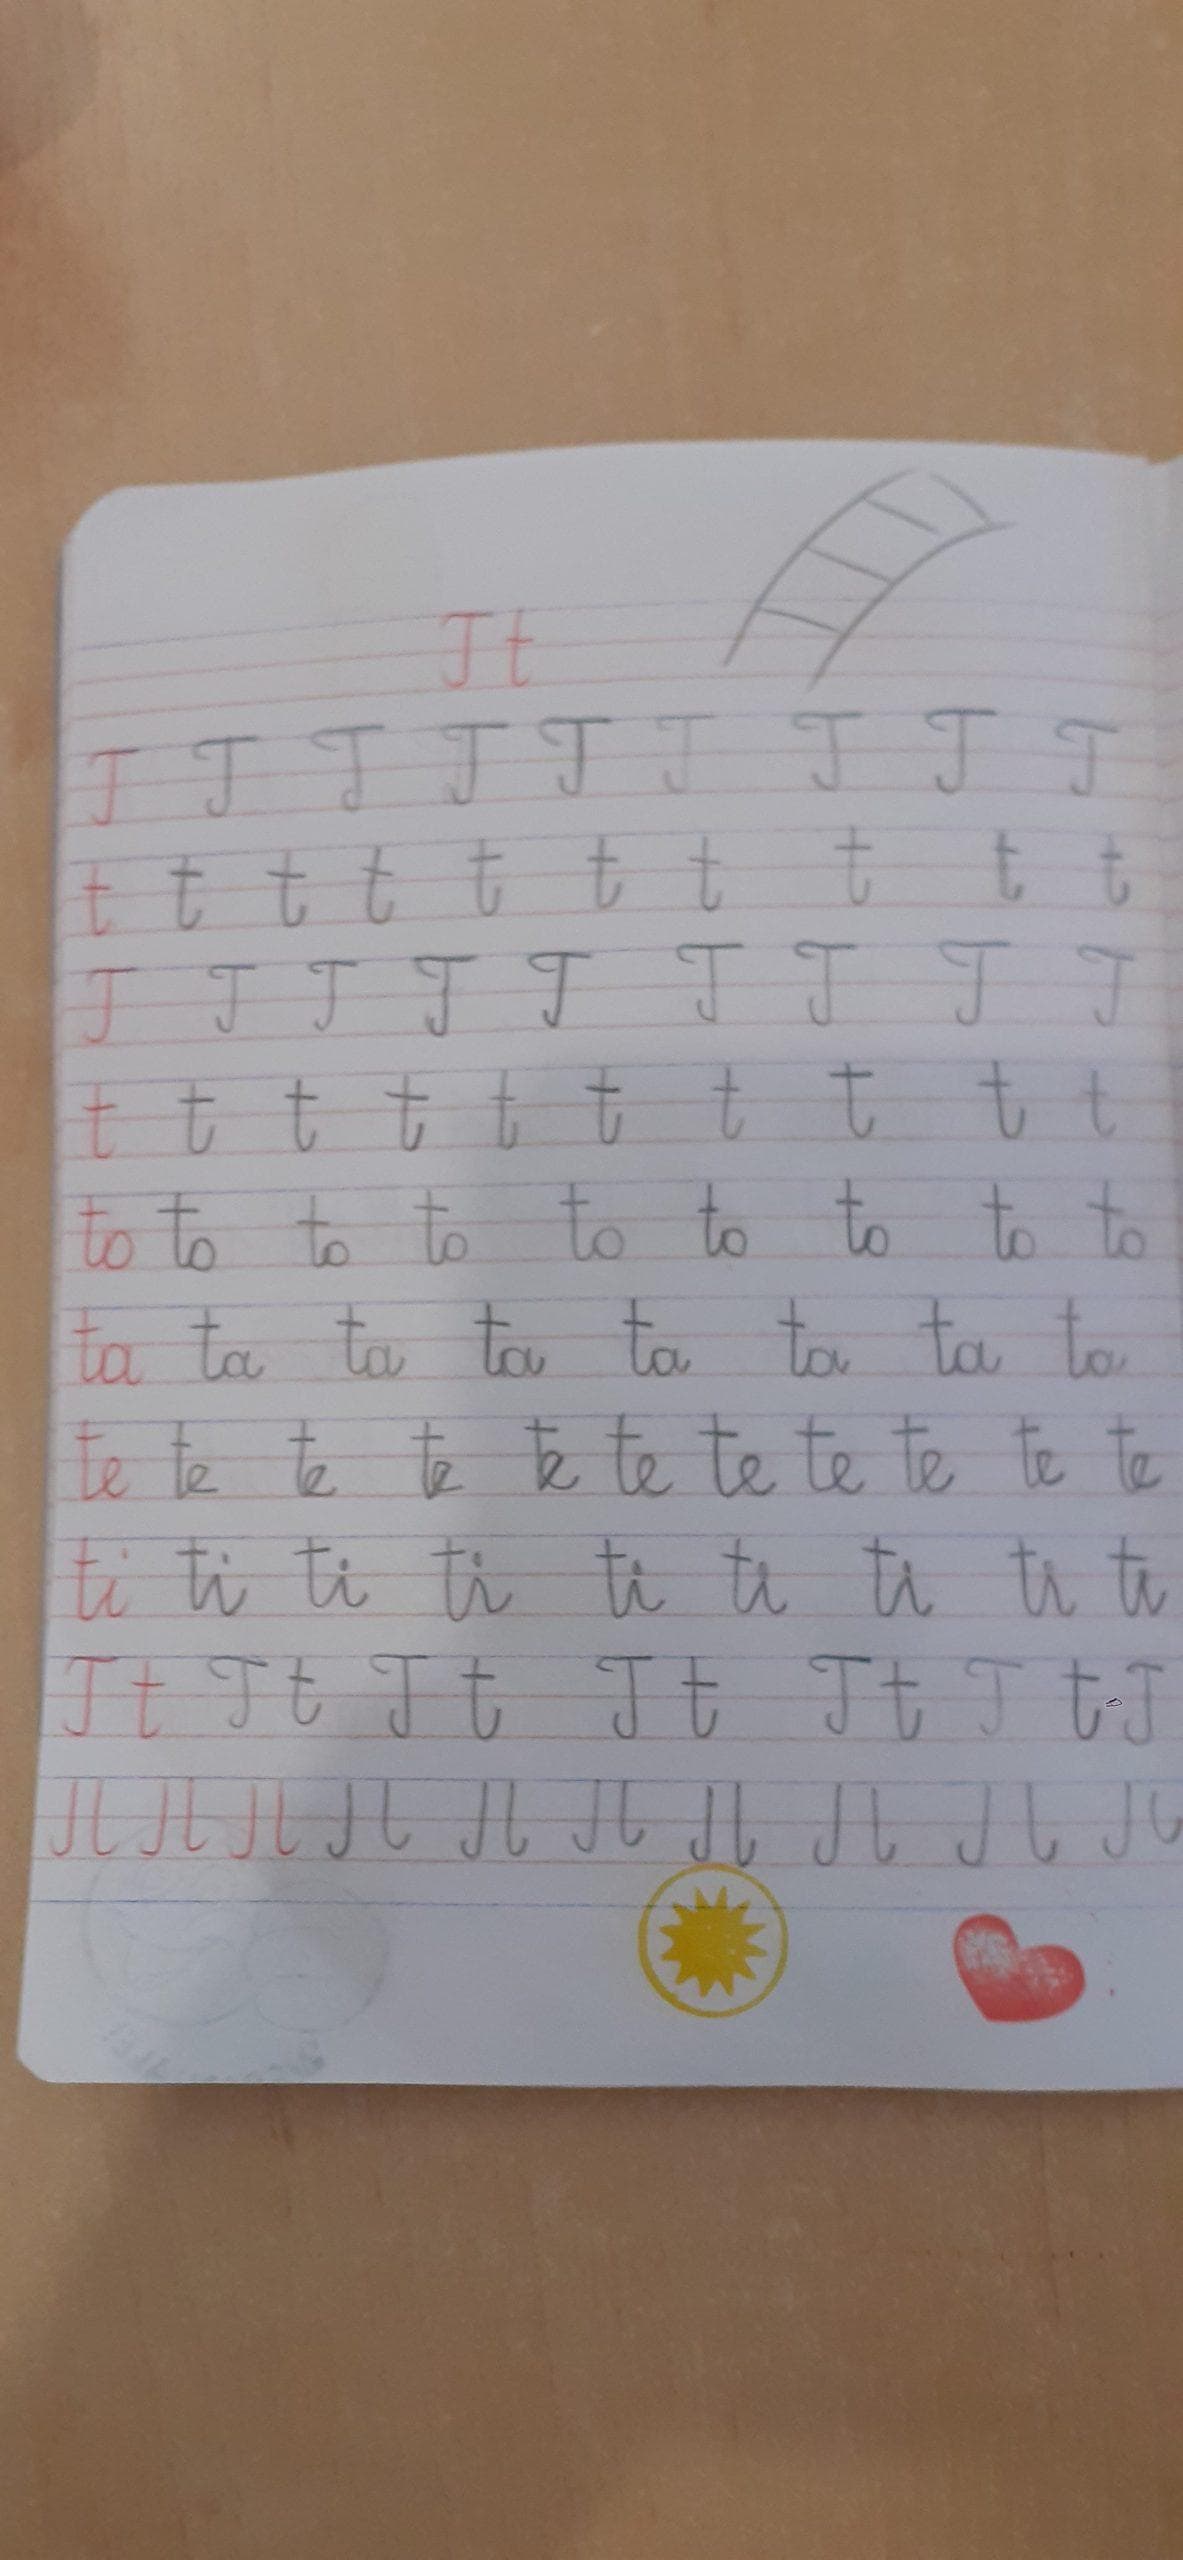 T t
T T T T T T T T T
t t t t t t t t t t
T T T T T T T T T
t t t t t t t t t t
to to to to to to to to to
ta ta ta ta ta ta ta ta
te te te te te te te te te te te
ti ti ti ti ti ti ti ti ti
T t T t T t T t T t T t T